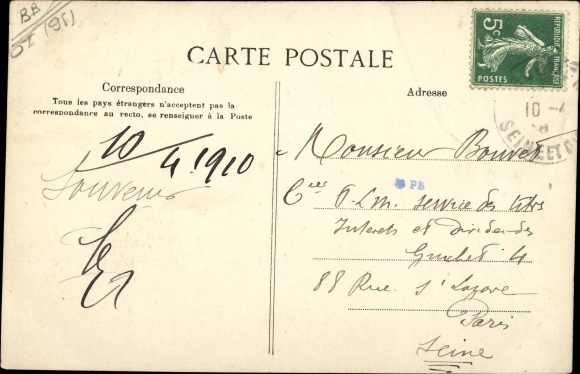 BB
(95)
5c
RÉPUBLIQUE FRANÇAISE
POSTES
CARTE POSTALE
Correspondance
Tous les pays étrangers n'acceptent pas la
correspondance au recto, se renseigner à la Poste
10/4/1910
Souvenir
Adresse
10 - 4
SEINE ET O
Monsieur Bouvet
PB
Cie P-L-M. service des titres
Interets et dividendes
Guichet 4
88 Rue St Lazare
Paris
Seine